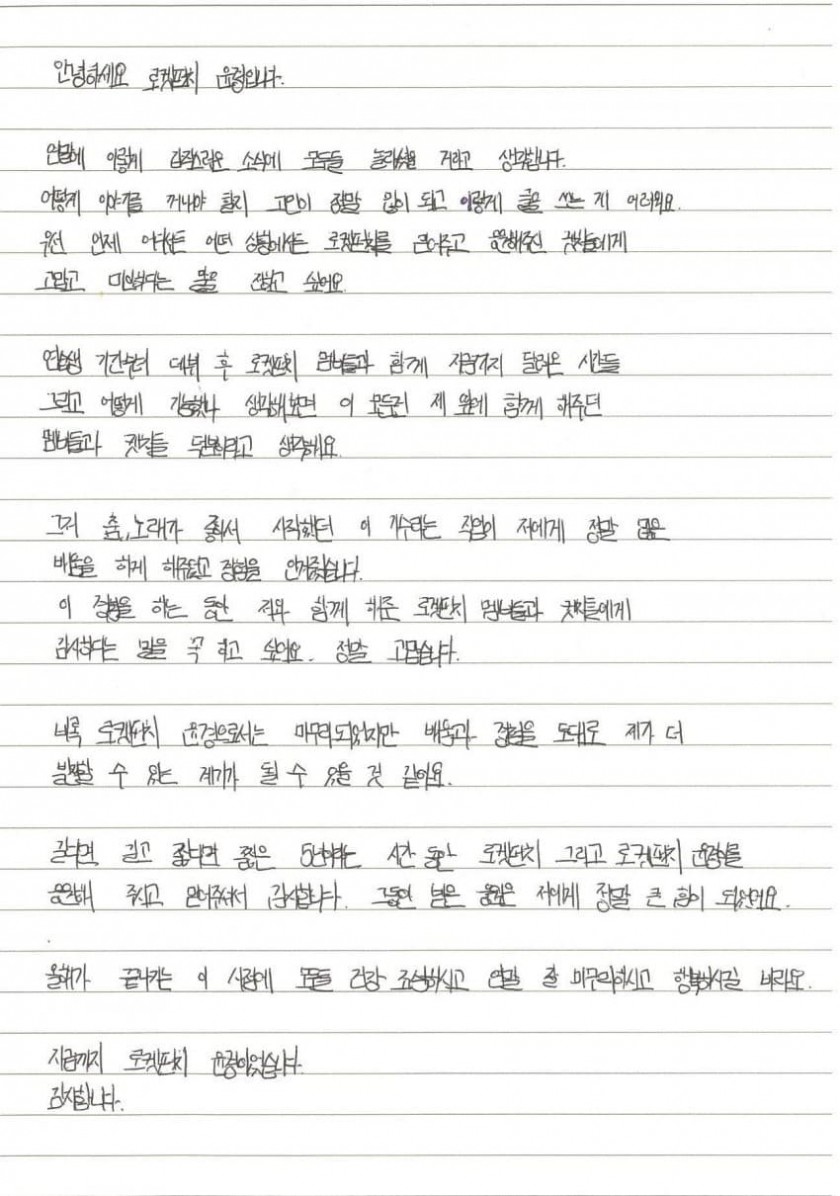 안녕하세요 로켓펀치 윤경입니다.
연말에 이렇게 갑작스러운 소식에 모두들 놀라셨을 거라고 생각합니다.
어떻게 이야기를 꺼내야 할지 고민이 정말 많이 되고 이렇게 글을 쓰는 게 어려워요.
우선 언제 어디서든 어떤 상황에서든 로켓펀치를 믿어주고 응원해주신 켓치들에게
고맙고 미안하다는 말을 전하고 싶어요.
연습생 기간부터 데뷔 후 로켓펀치 멤버들과 함께 지금까지 달려온 시간들
그리고 어떻게 가능했나 생각해보면 이 모든건 제 옆에 함께 해주던
멤버들과 켓치들 덕분이라고 생각해요.
그저 춤, 노래가 좋아서 시작했던 이 가수라는 직업이 저에게 정말 많은
배움을 하게 해주었고 경험을 안겨줬습니다.
이 경험을 하는 동안 저와 함께 해준 로켓펀치 멤버들과 켓치들에게
감사하다는 말을 꼭 하고 싶어요. 정말 고맙습니다.
비록 로켓펀치 윤경으로서는 마무리되었지만 배움과 경험을 토대로 제가 더
발전할 수 있는 계기가 될 수 있을 것 같아요.
길다면 길고 짧다면 짧은 5년이라는 시간 동안 로켓펀치 그리고 로켓펀치 윤경이를
응원해 주시고 믿어주셔서 감사합니다. 그동안 받은 응원은 저에게 정말 큰 힘이 되었어요.
올해가 끝나가는 이 시점에 모두들 건강 조심하시고 연말 잘 마무리하시고 행복하시길 바라요.
지금까지 로켓펀치 윤경이었습니다.
감사합니다.